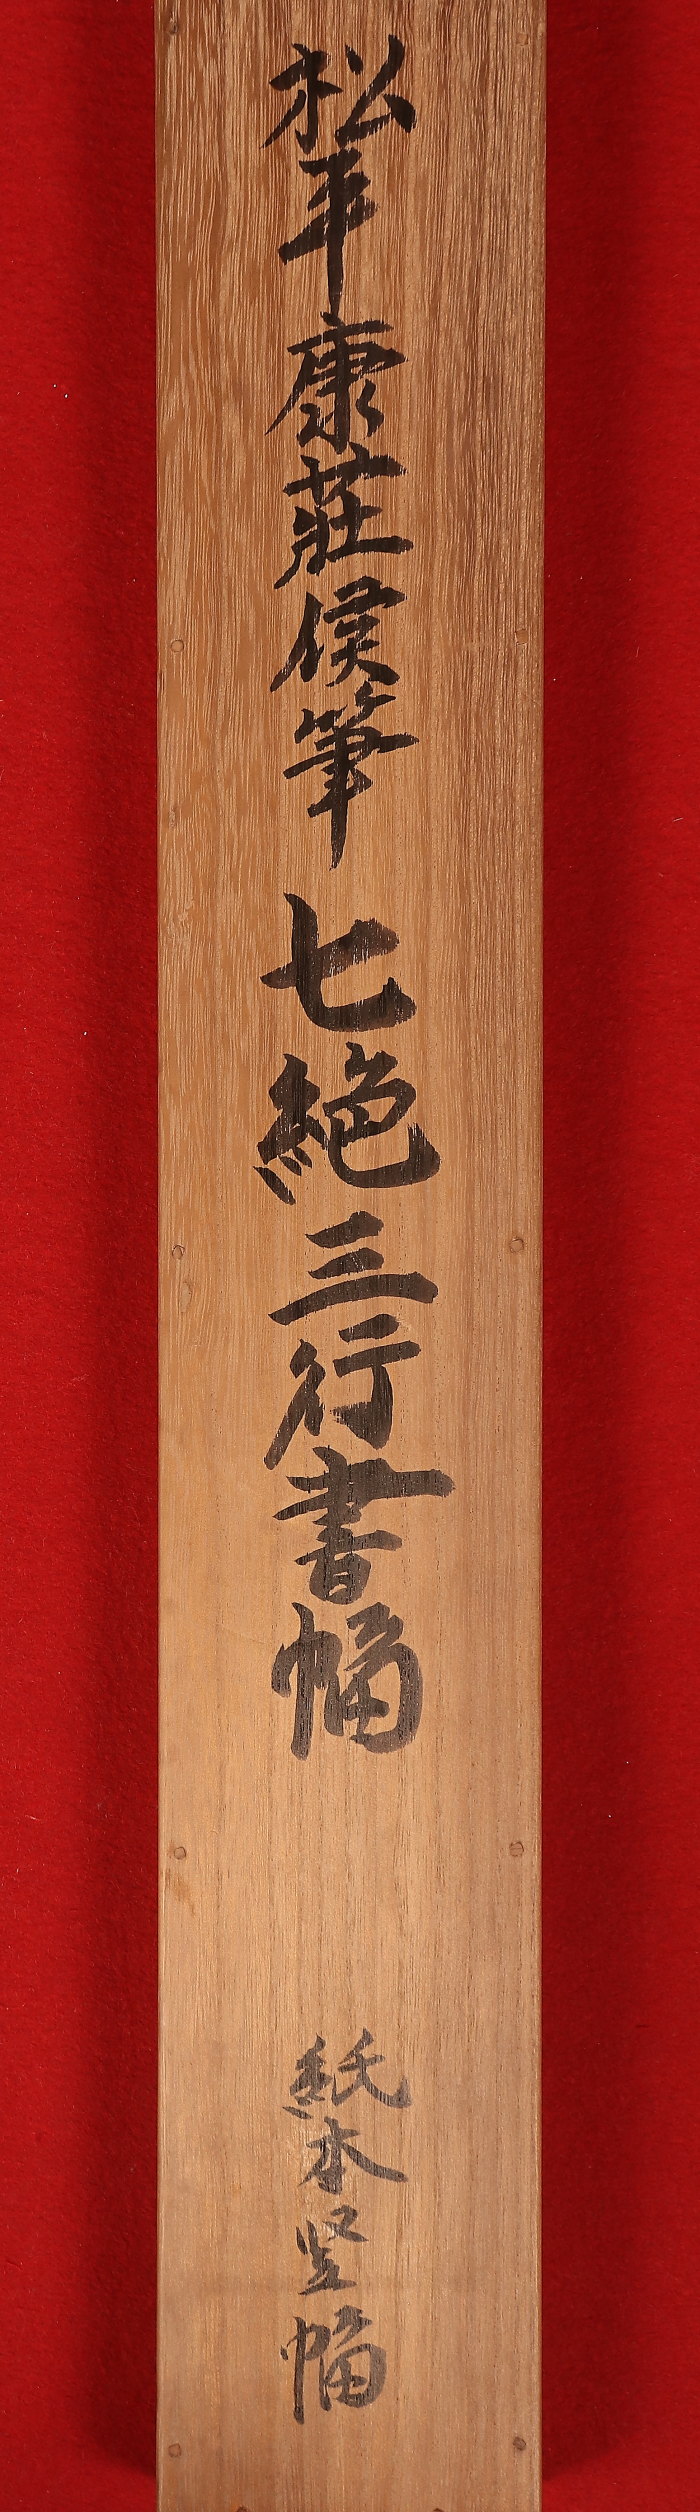 松平康荘侯筆 七絶三行書幅 紙本竪幅